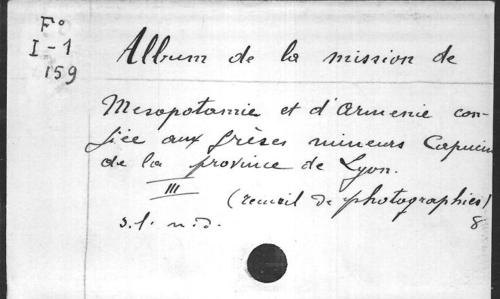 F°
I-1
159
Album de la mission de
Mesopotamie et d'Armenie con-
fiée aux frères mineurs Capucins
de la province de Lyon.
III
(recueil de photographies)
s.l. n.d.
8